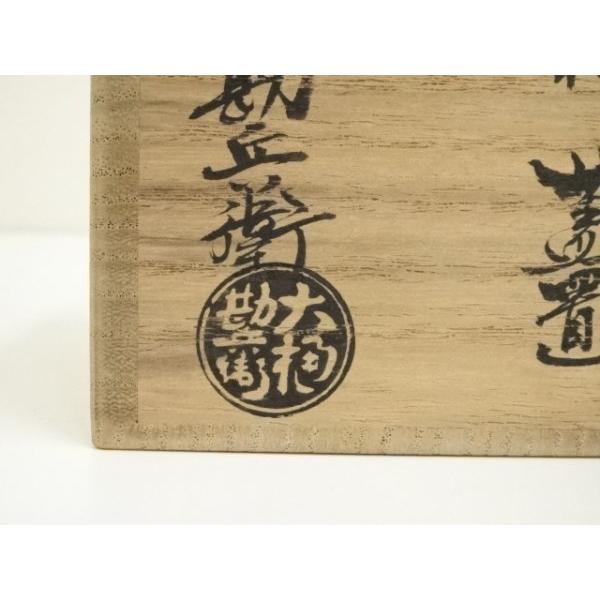 蓋置
勘兵衛
大樋
勘兵衛